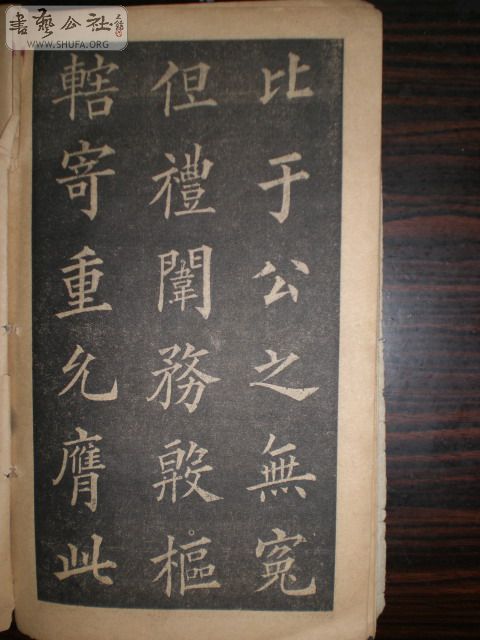 書藝公社
WWW.SHUFA.ORG
比于公之無冤
但禮闈務殷樞
轄寄重允膺此